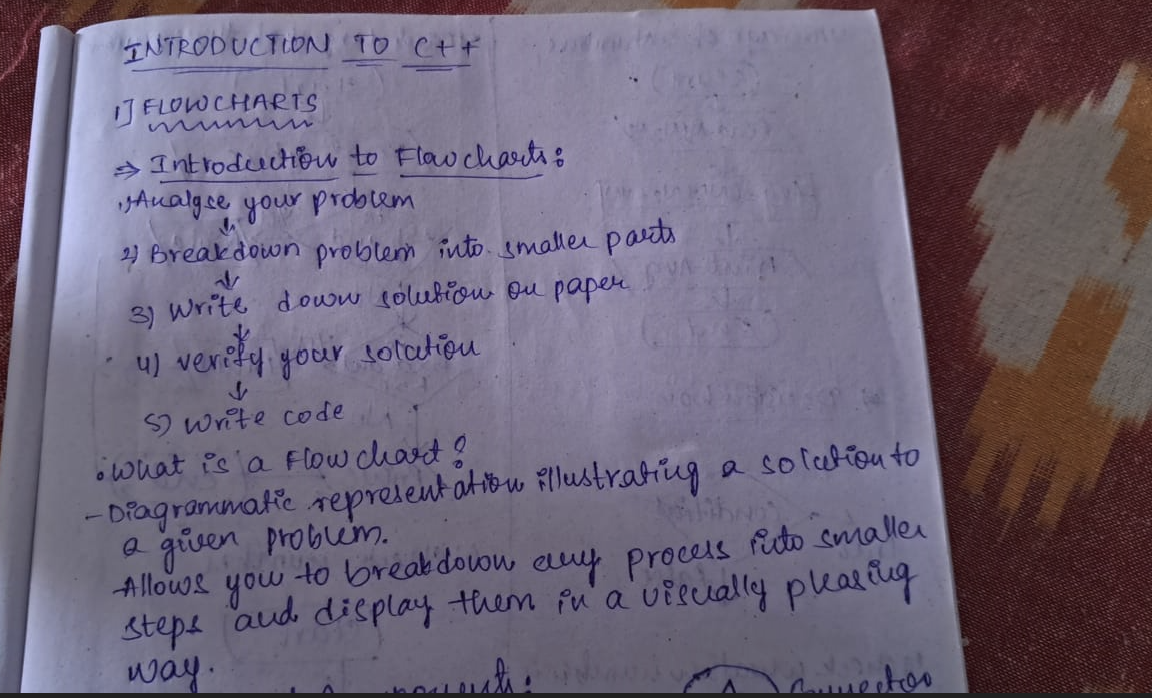 INTRODUCTION TO C++
1] FLOWCHARTS
⇒ Introduction to Flowcharts:
1) Analyse your problem
↓
2) Breakdown problem into smaller parts
↓
3) Write down solution on paper
↓
4) verify your solution
↓
5) write code
• What is a Flowchart?
- Diagrammatic representation illustrating a solution to
a given problem.
- Allows you to breakdown any process into smaller
steps and display them in a visually pleasing
way.